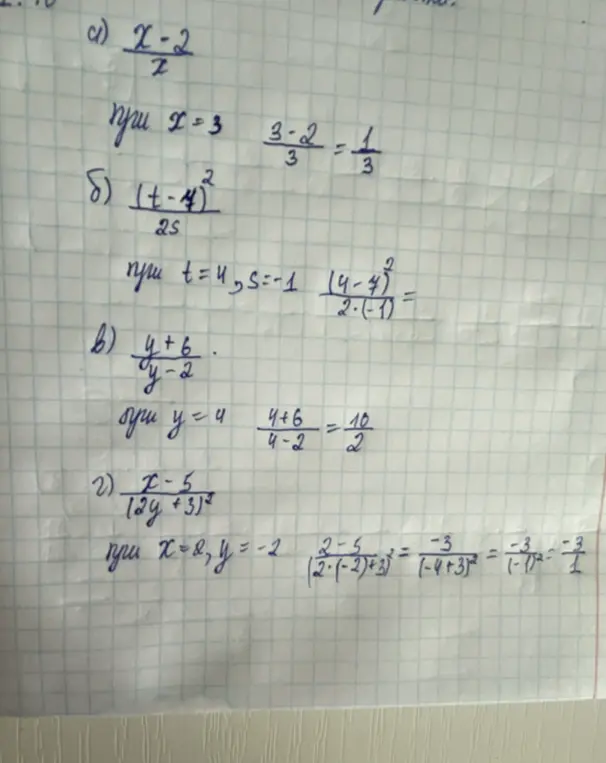 а) (x - 2)/x
при x = 3 (3 - 2)/3 = 1/3
б) (t - 7)²/2s
при t = 4, s = -1 (4 - 7)²/2·(-1) =
в) (y + 6)/(y - 2).
при y = 4 (4+6)/(4-2) = 10/2
г) (x - 5)/(2y + 3)²
при x = 2, y = -2 (2 - 5)/(2·(-2)+3)² = -3/(-4+3)² = -3/(-1)² = -3/1